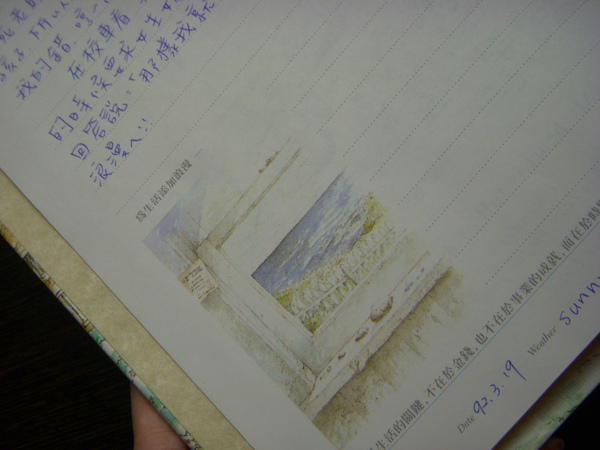 孩子 所以
我的錯. 嗚~
在校車看
的時候要求女生
回答說:「那樣我就
浪漫ㄟ!!
為生活添加浪漫
生活的關鍵，不在於金錢，也不在於事業的成就，而在於時
Date 92.3.19 Weather sunn